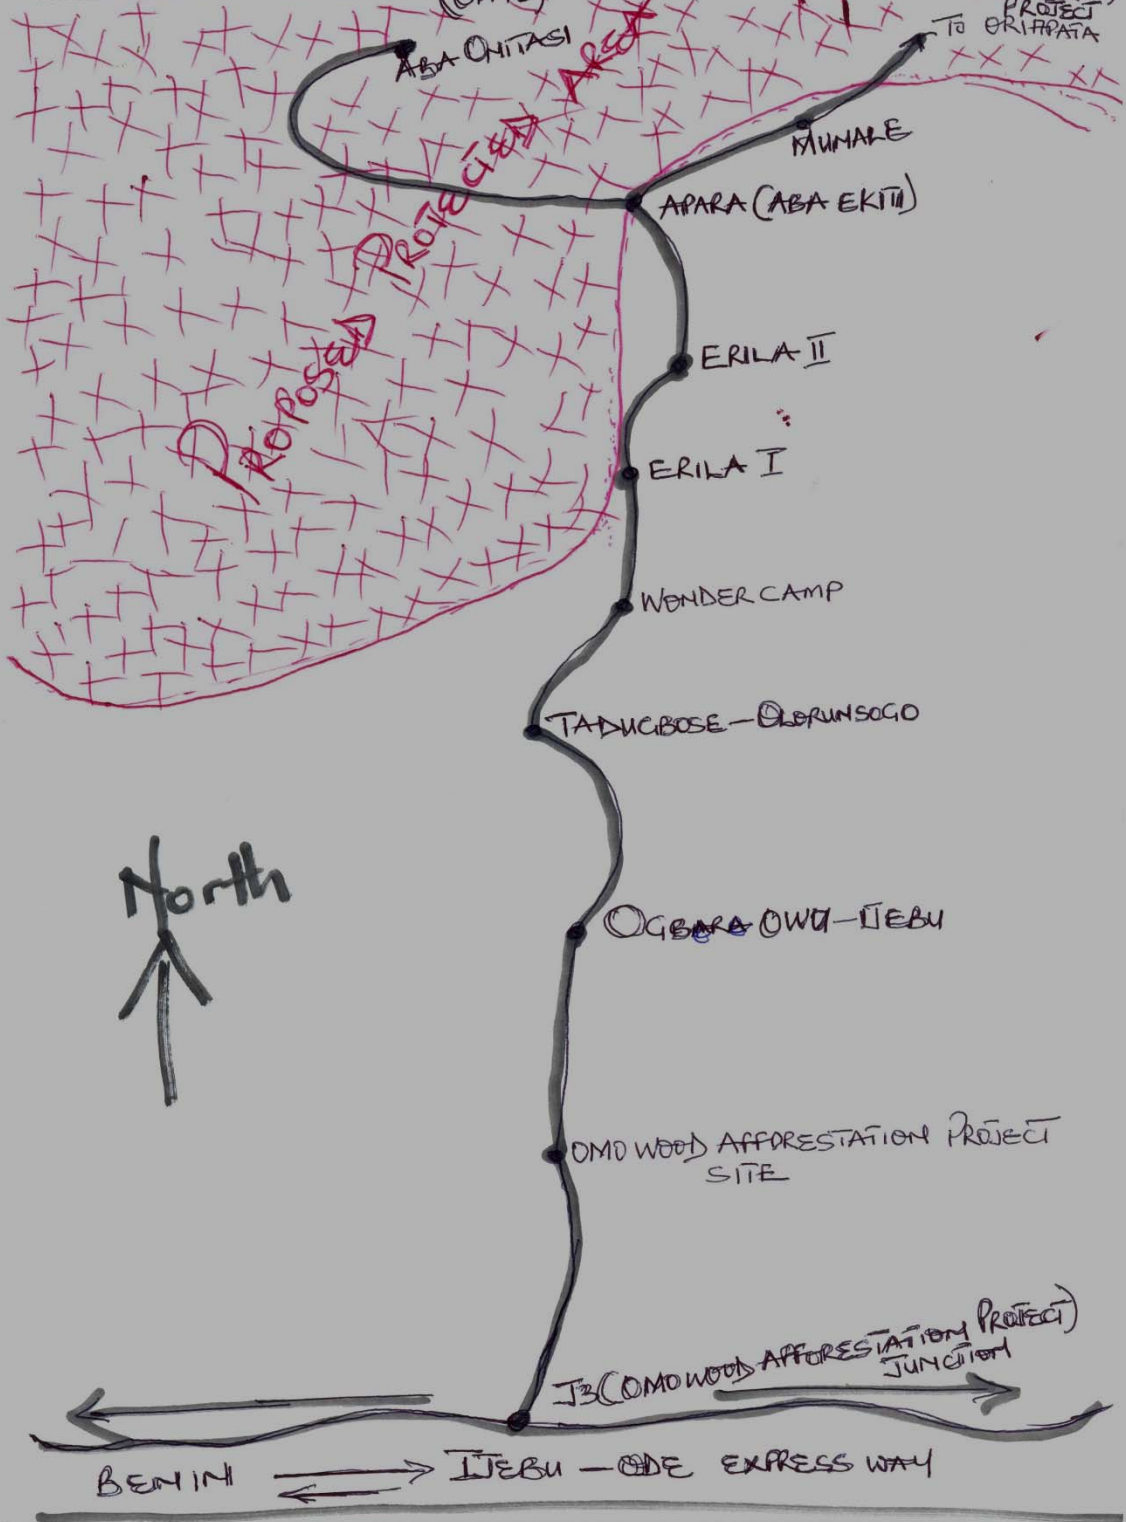 PROJECT
TO ORIAPATA
ABA ONITASI
MUMALE
APARA (ABA EKITI)
PROPOSED PROTECTED AREA
ERILA II
ERILA I
WONDER CAMP
TADUGBOSE - OLORUNSOGO
North
OGBERE OWU - IJEBU
OMO WOOD AFFORESTATION PROJECT
SITE
J3 (OMO WOOD AFFORESTATION PROJECT)
JUNCTION
BENIN IJEBU - ODE EXPRESS WAY